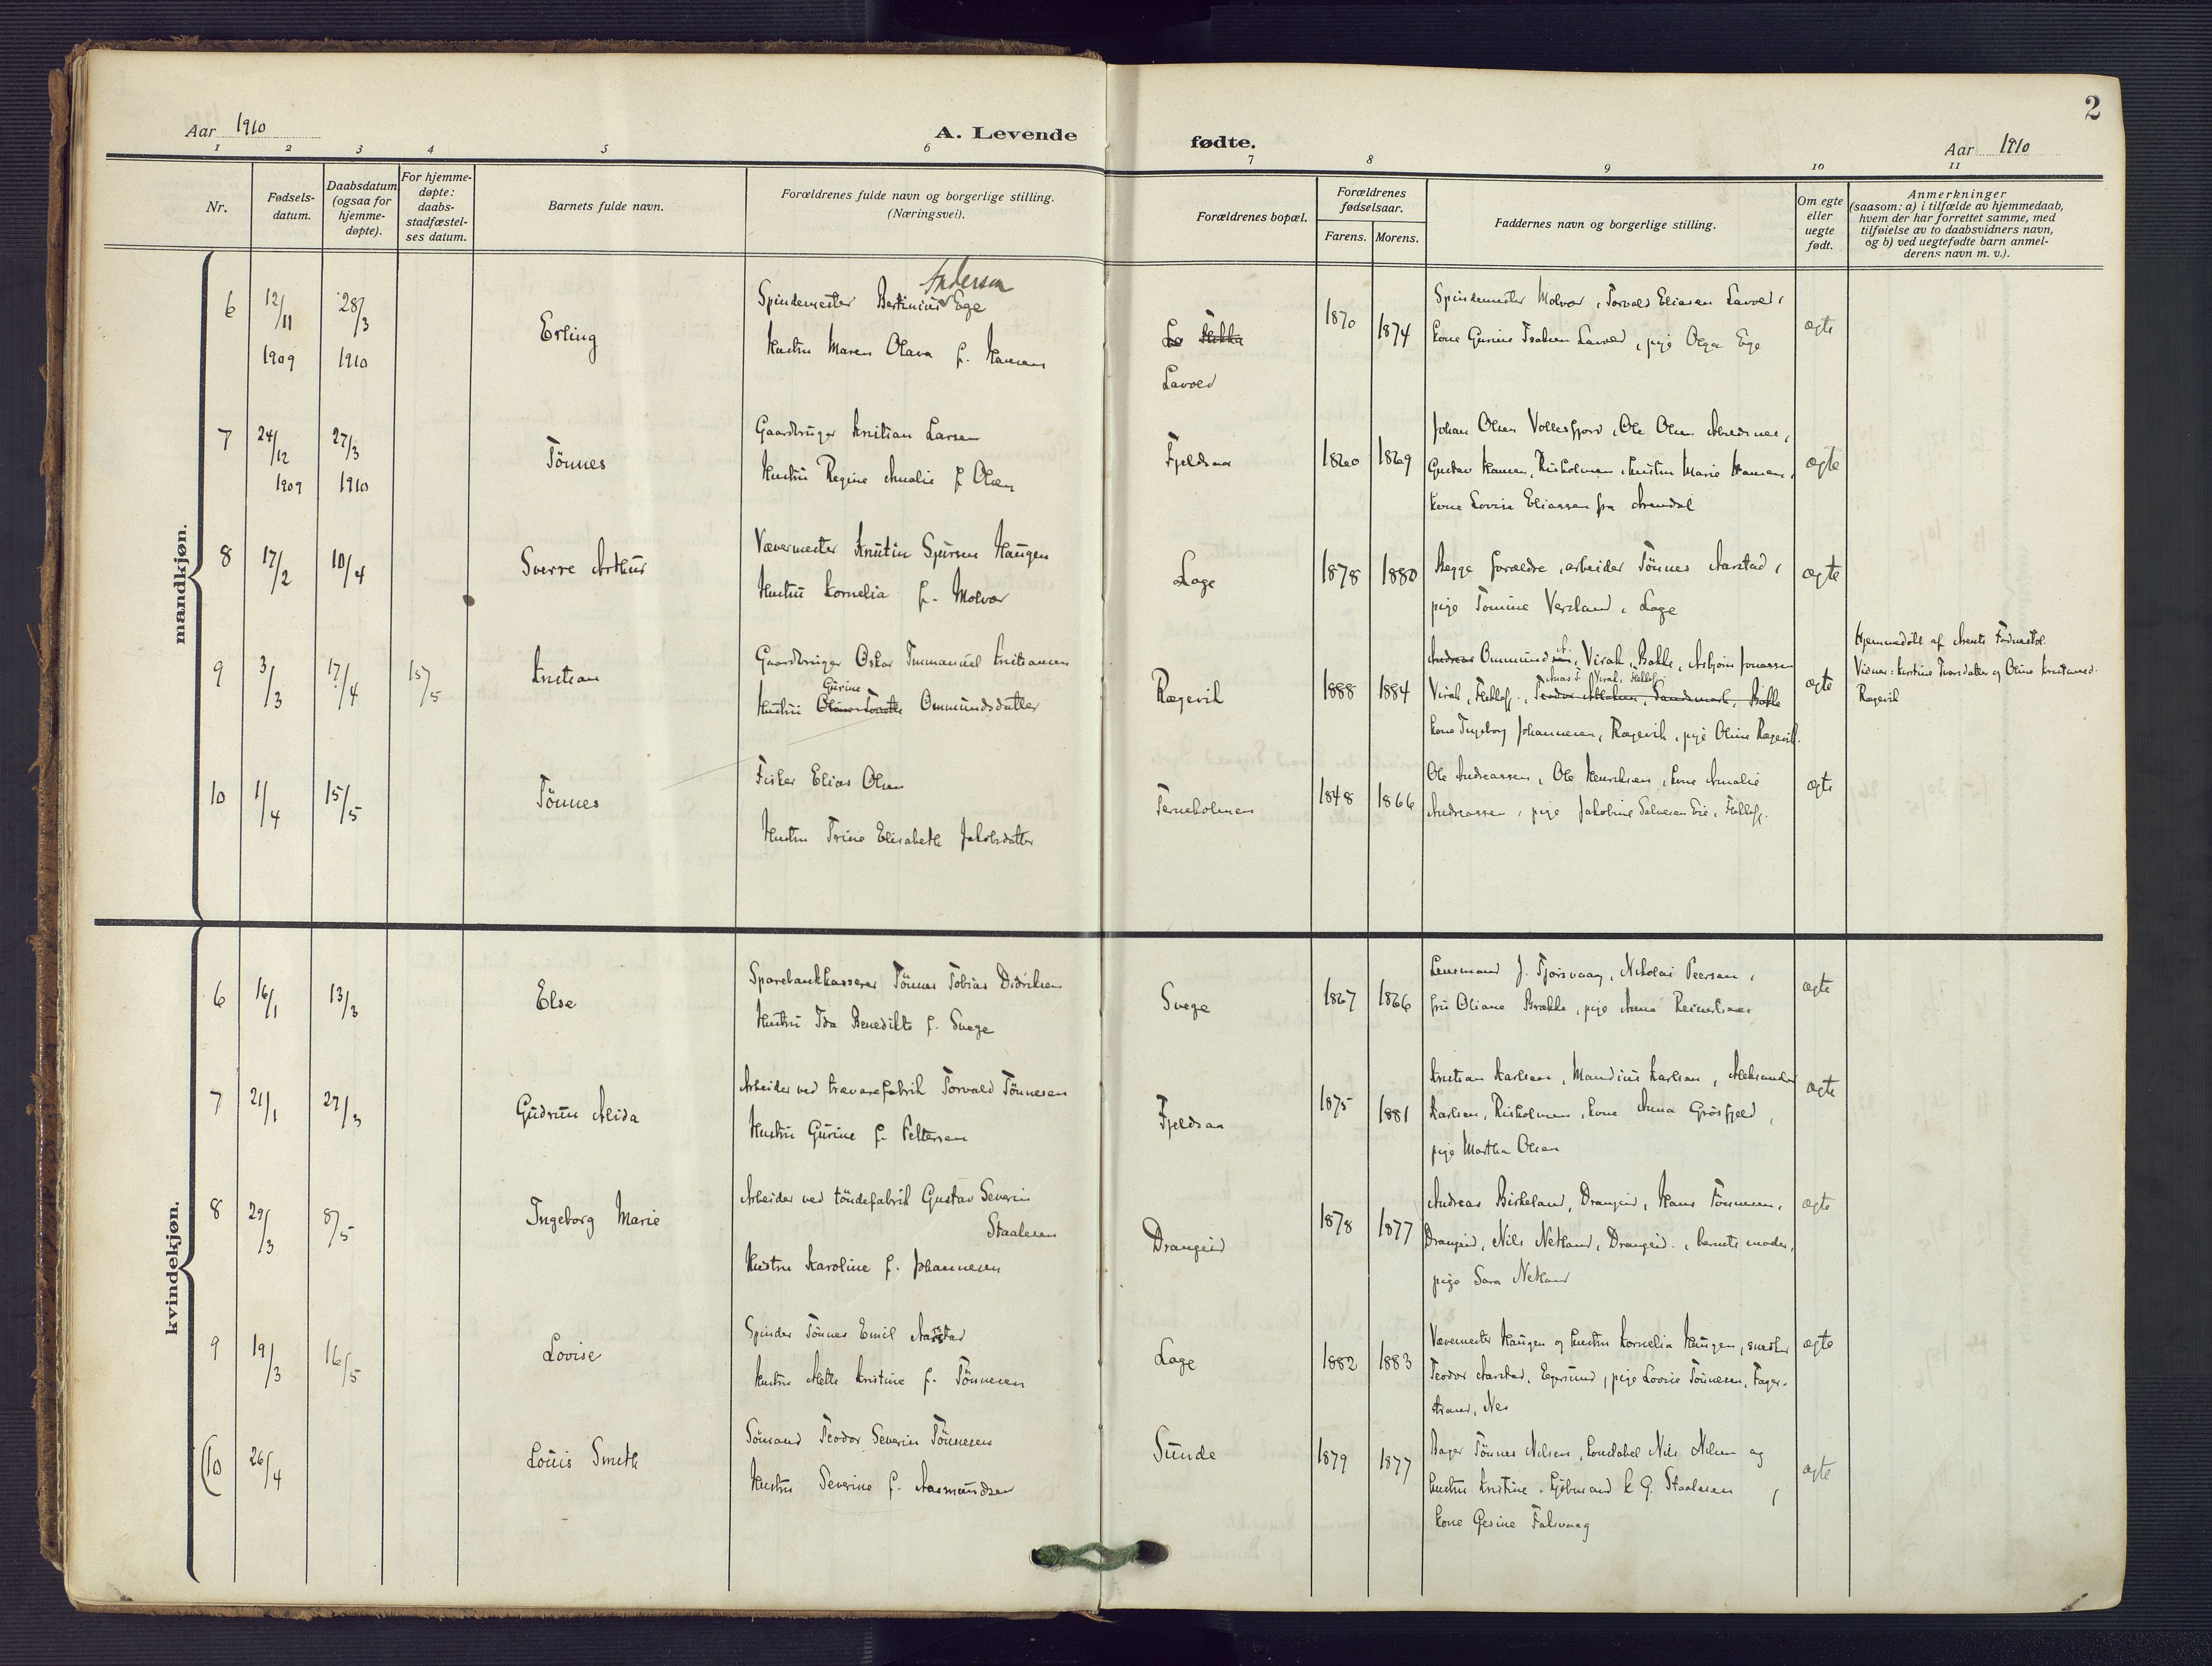 2
Aar 1910
A. Levende fødte.
Aar 1910
1 2 3 4 5 6 7 8 9 10 11
Nr.
Fødsels-
datum.
Daabsdatum
(ogsaa for
hjemme-
døpte).
For hjemme-
døpte:
daabs-
stadfæstel-
ses datum.
Barnets fulde navn.
Forældrenes fulde navn og borgerlige stilling.
(Næringsvei).
Forældrenes bopæl.
Forældrenes
fødselsaar.
Farens. Morens.
Faddernes navn og borgerlige stilling.
Om egte
eller
uegte
født.
Anmerkninger
(saasom: a) i tilfælde av hjemmedaab,
hvem der har forrettet samme, med
tilføielse av to daabsvidners navn,
og b) ved uegtefødte barn anmel-
derens navn m. v.).
mandkjøn.
6 12/11 1909 28/3 1910
Erling
Andersen
Spindemester Bertinius Ege
Hustru Maren Olava f. Hansen
Lavold
1870 1874
Spindemester Molvær, Torvald Eliasen Lavold,
kone Gurine Isaksen Lavold, pige Olga Ege
ægte
7 24/12 1909 27/3 1910
Tönnes
Gaardbruger Kristian Larsen
Hustru Regine Amalie f. Olsen
Fjeldsaa
1860 1869
Johan Olsen Vollesfjord, Ole Olsen
Gustav Hansen, Risholmen, Marie Hansen,
kone Lovise Eliassen fra Arendal
ægte
8 17/2 10/4
Sverre Arthur
Vævermester Kristin Sjursen Haugen
Hustru Kornelia f. Molvær
Loge
1878 1880
Begge forældre, arbeider Tönnes Aarstad,
pige Tomine Versland, Loge
ægte
9 3/3 17/4 15/5
Kristian
Gaardbruger Oskar Immanuel Kristiansen
Gurine
Hustru Ommundsdatter
Rægevik
1888 1884
Andreas Ommundsen, Virak, Bakke, Asbjørn Jonassen
Virak, Flekkefj., Teodor Abrahamsen, Sandsmark, Bakke
kone Ingeborg Johannesen, Rægevik, pige Oline Rægevik.
ægte
Hjemmedöbt af Arents
Vidner: Kirstine Iversdatter og Oline
Rægevik
10 1/4 15/5
Tönnes
Fisker Elias Olsen
Hustru Trine Elisabeth Jakobsdatter
Terneholmen
1848 1866
Ole Andreassen, Ole Henriksen, kone Amalie
Andreassen, pige Jakobine Salvesen Eie, Flekkefj.
ægte
kvindekjøn.
6 16/1 13/3
Else
Sparebankkasserer Tönnes Tobias Didriksen
Hustru Ida Benedikte f. Svege
Svege
1867 1866
Lensmand J. Fjorsvaag, Nikolai Peersen,
fru Oliane Brække, pige Anna Reinertsen
ægte
7 21/1 27/3
Gudrun Alida
Arbeider ved trævarefabrik Torvald Tönnesen
Hustru Gurine f. Pettersen
Fjeldsaa
1875 1881
Kristian Karlsen, Mandius Karlsen, Aleksander
Karlsen, Risholmen, kone Anna Grösfjeld,
pige Martha Olsen
ægte
8 29/3 8/5
Ingeborg Marie
Arbeider ved töndefabrik Gustav Severin
Staalesen
Hustru Karoline f. Johannesen
Drangeid
1878 1877
Andreas Birkeland, Drangeid, Hans Tönnesen,
Drangeid, Nils Netland, Drangeid, barnets moder,
pige Sara Netland
ægte
9 19/3 16/5
Lovise
Spinder Tönnes Emil Aarstad
Hustru Mette Kristine f. Tönnesen
Loge
1882 1883
Vævemester Haugen og hustru Kornelia Haugen, snedker
Teodor Aarstad, Egersund, pige Lovise Tönnesen, Fager-
strand, Nes
ægte
(10 26/4
Louis Smith
Sömand Teodor Severin Tönnesen
Hustru Severine f. Aasmundsen
Sunde
1879 1877
Bager Tönnes Nilsen, konstabel Nils Nilsen og
hustru Kristine, Kjöbmand K. G. Staalesen,
kone Gesine Falsvaag
ægte